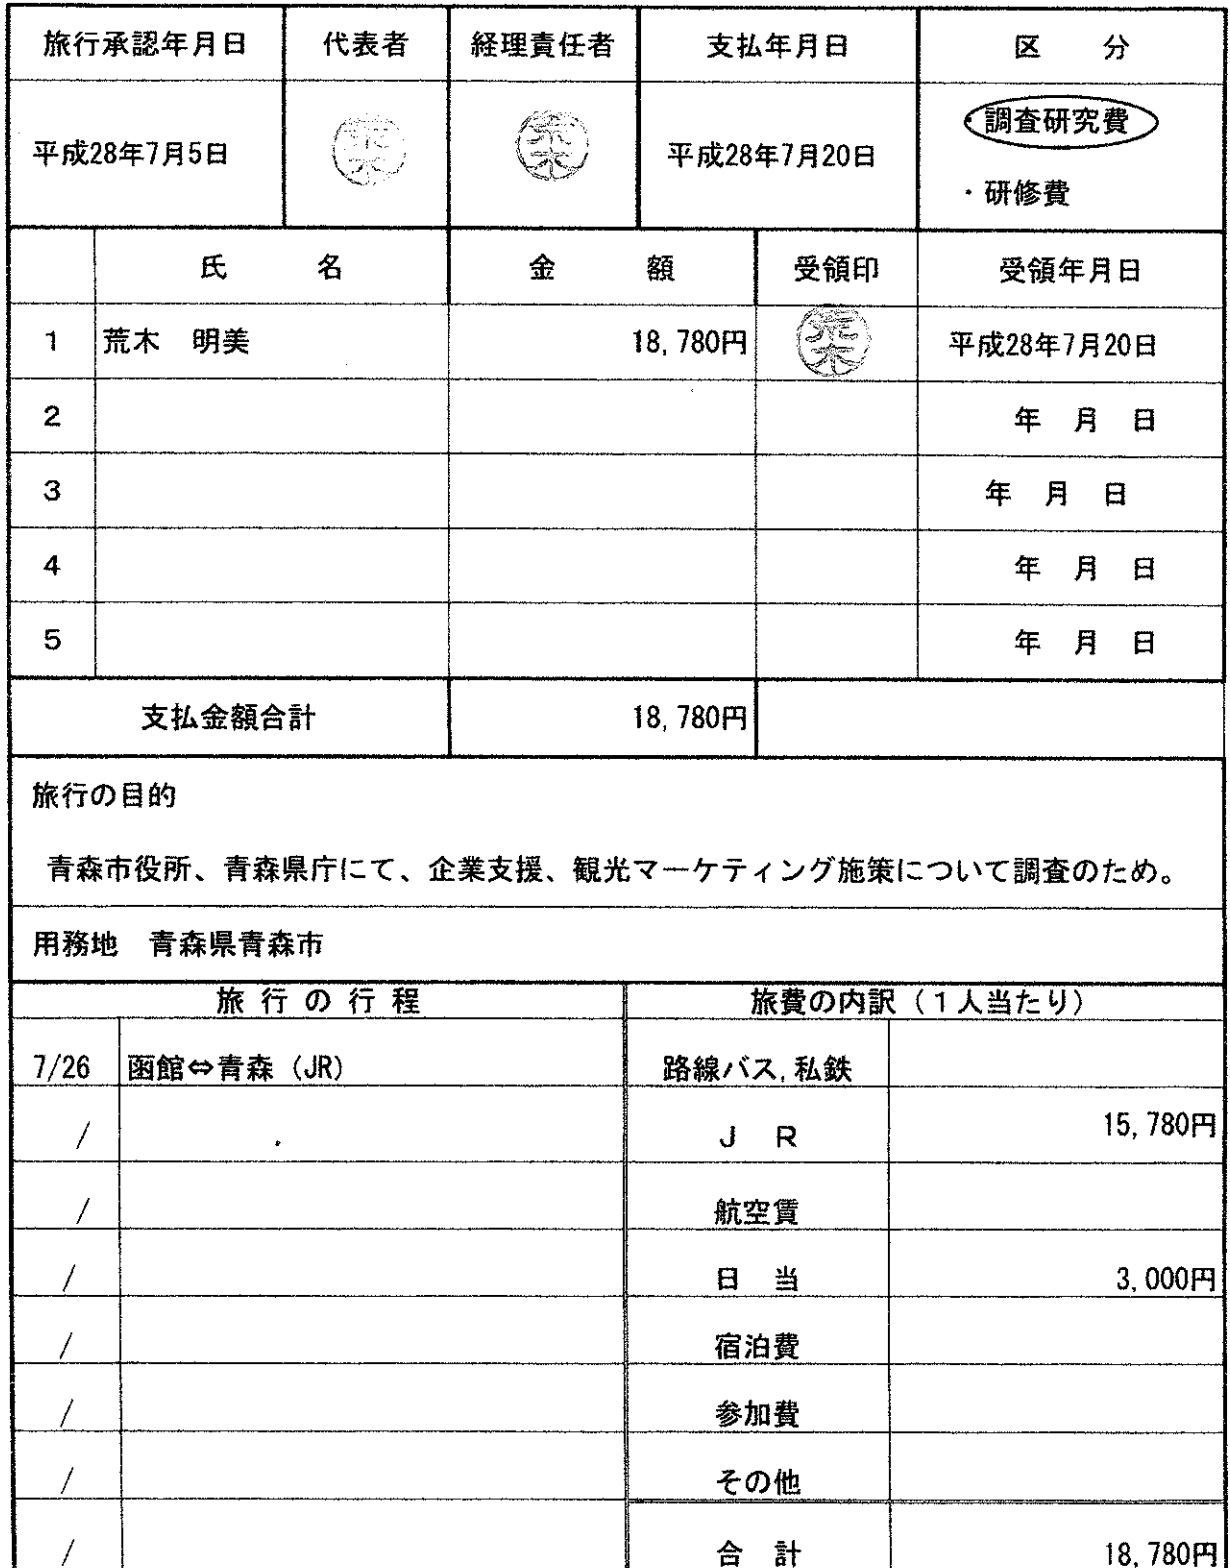 旅行承認年月日 代表者 経理責任者 支払年月日 区 分
平成28年7月5日 荒木 荒木 平成28年7月20日 ・調査研究費
・研修費
氏 名 金 額 受領印 受領年月日
1 荒木 明美 18,780円 荒木 平成28年7月20日
2 年 月 日
3 年 月 日
4 年 月 日
5 年 月 日
支払金額合計 18,780円
旅行の目的
青森市役所、青森県庁にて、企業支援、観光マーケティング施策について調査のため。
用務地 青森県青森市
旅 行 の 行 程 旅費の内訳（１人当たり）
7/26 函館⇔青森（JR） 路線バス,私鉄
/ Ｊ Ｒ 15,780円
/ 航空賃
/ 日 当 3,000円
/ 宿泊費
/ 参加費
/ その他
/ 合 計 18,780円